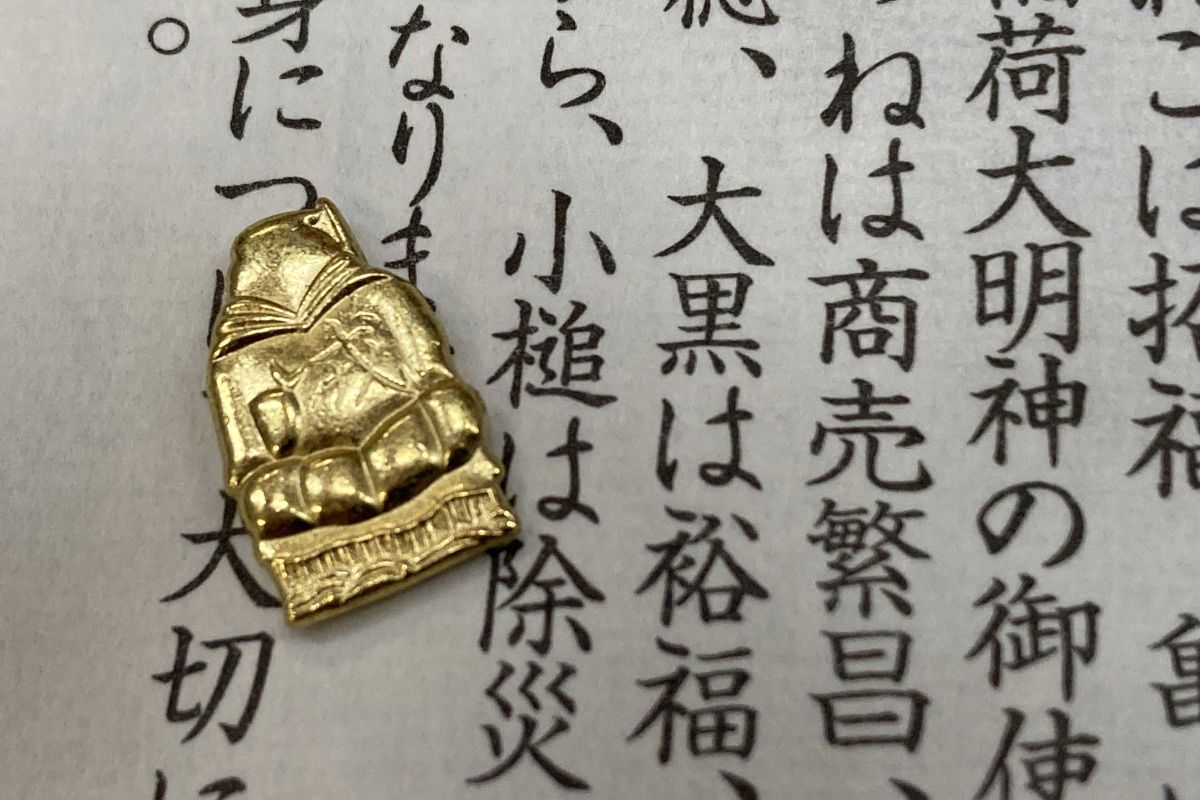 こは招福 亀
荷大明神の御使
ねは商売繁昌、
、 大黒は裕福、
ら、 小槌は除災
なりま
身につ 大切に
。